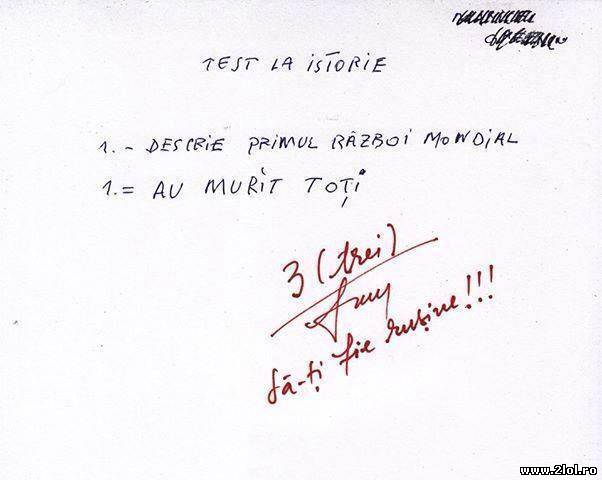 TEST LA ISTORIE
1. - DESCRIE PRIMUL RĂZBOI MONDIAL
1. = AU MURIT TOȚI
3 (trei)
Să-ți fie rușine!!!
www.2lol.ro